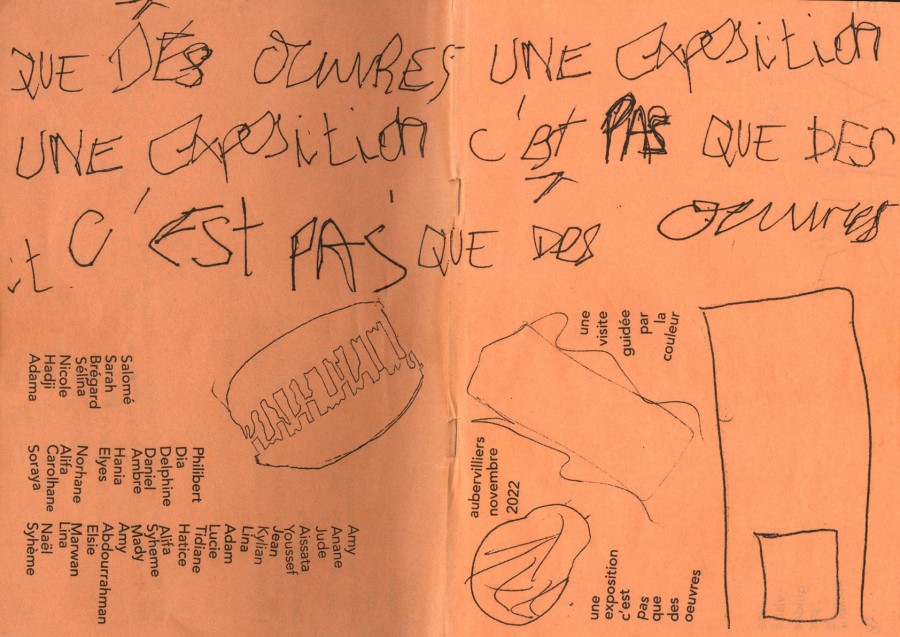 QUE DES OEUVRES UNE EXPOSITION
UNE EXPOSITION C'EST PAS QUE DES
it C'EST PAS QUE DES OEUVRES
une
visite
guidée
par
la
couleur
aubervilliers
novembre
2022
une
exposition
c'est
pas
que
des
oeuvres
Salomé
Sarah
Brégard
Sélina
Nicole
Hadji
Adama
Philibert
Dia
Delphine
Daniel
Ambre
Hania
Elyes
Norhane
Alifa
Carolhane
Soraya
Amy
Anane
Jude
Aissata
Youssef
Jean
Kylian
Lina
Adam
Lucie
Tidiane
Hatice
Alifa
Syheme
Mady
Amy
Abdourrahman
Elsie
Marwan
Lina
Naël
Syhème